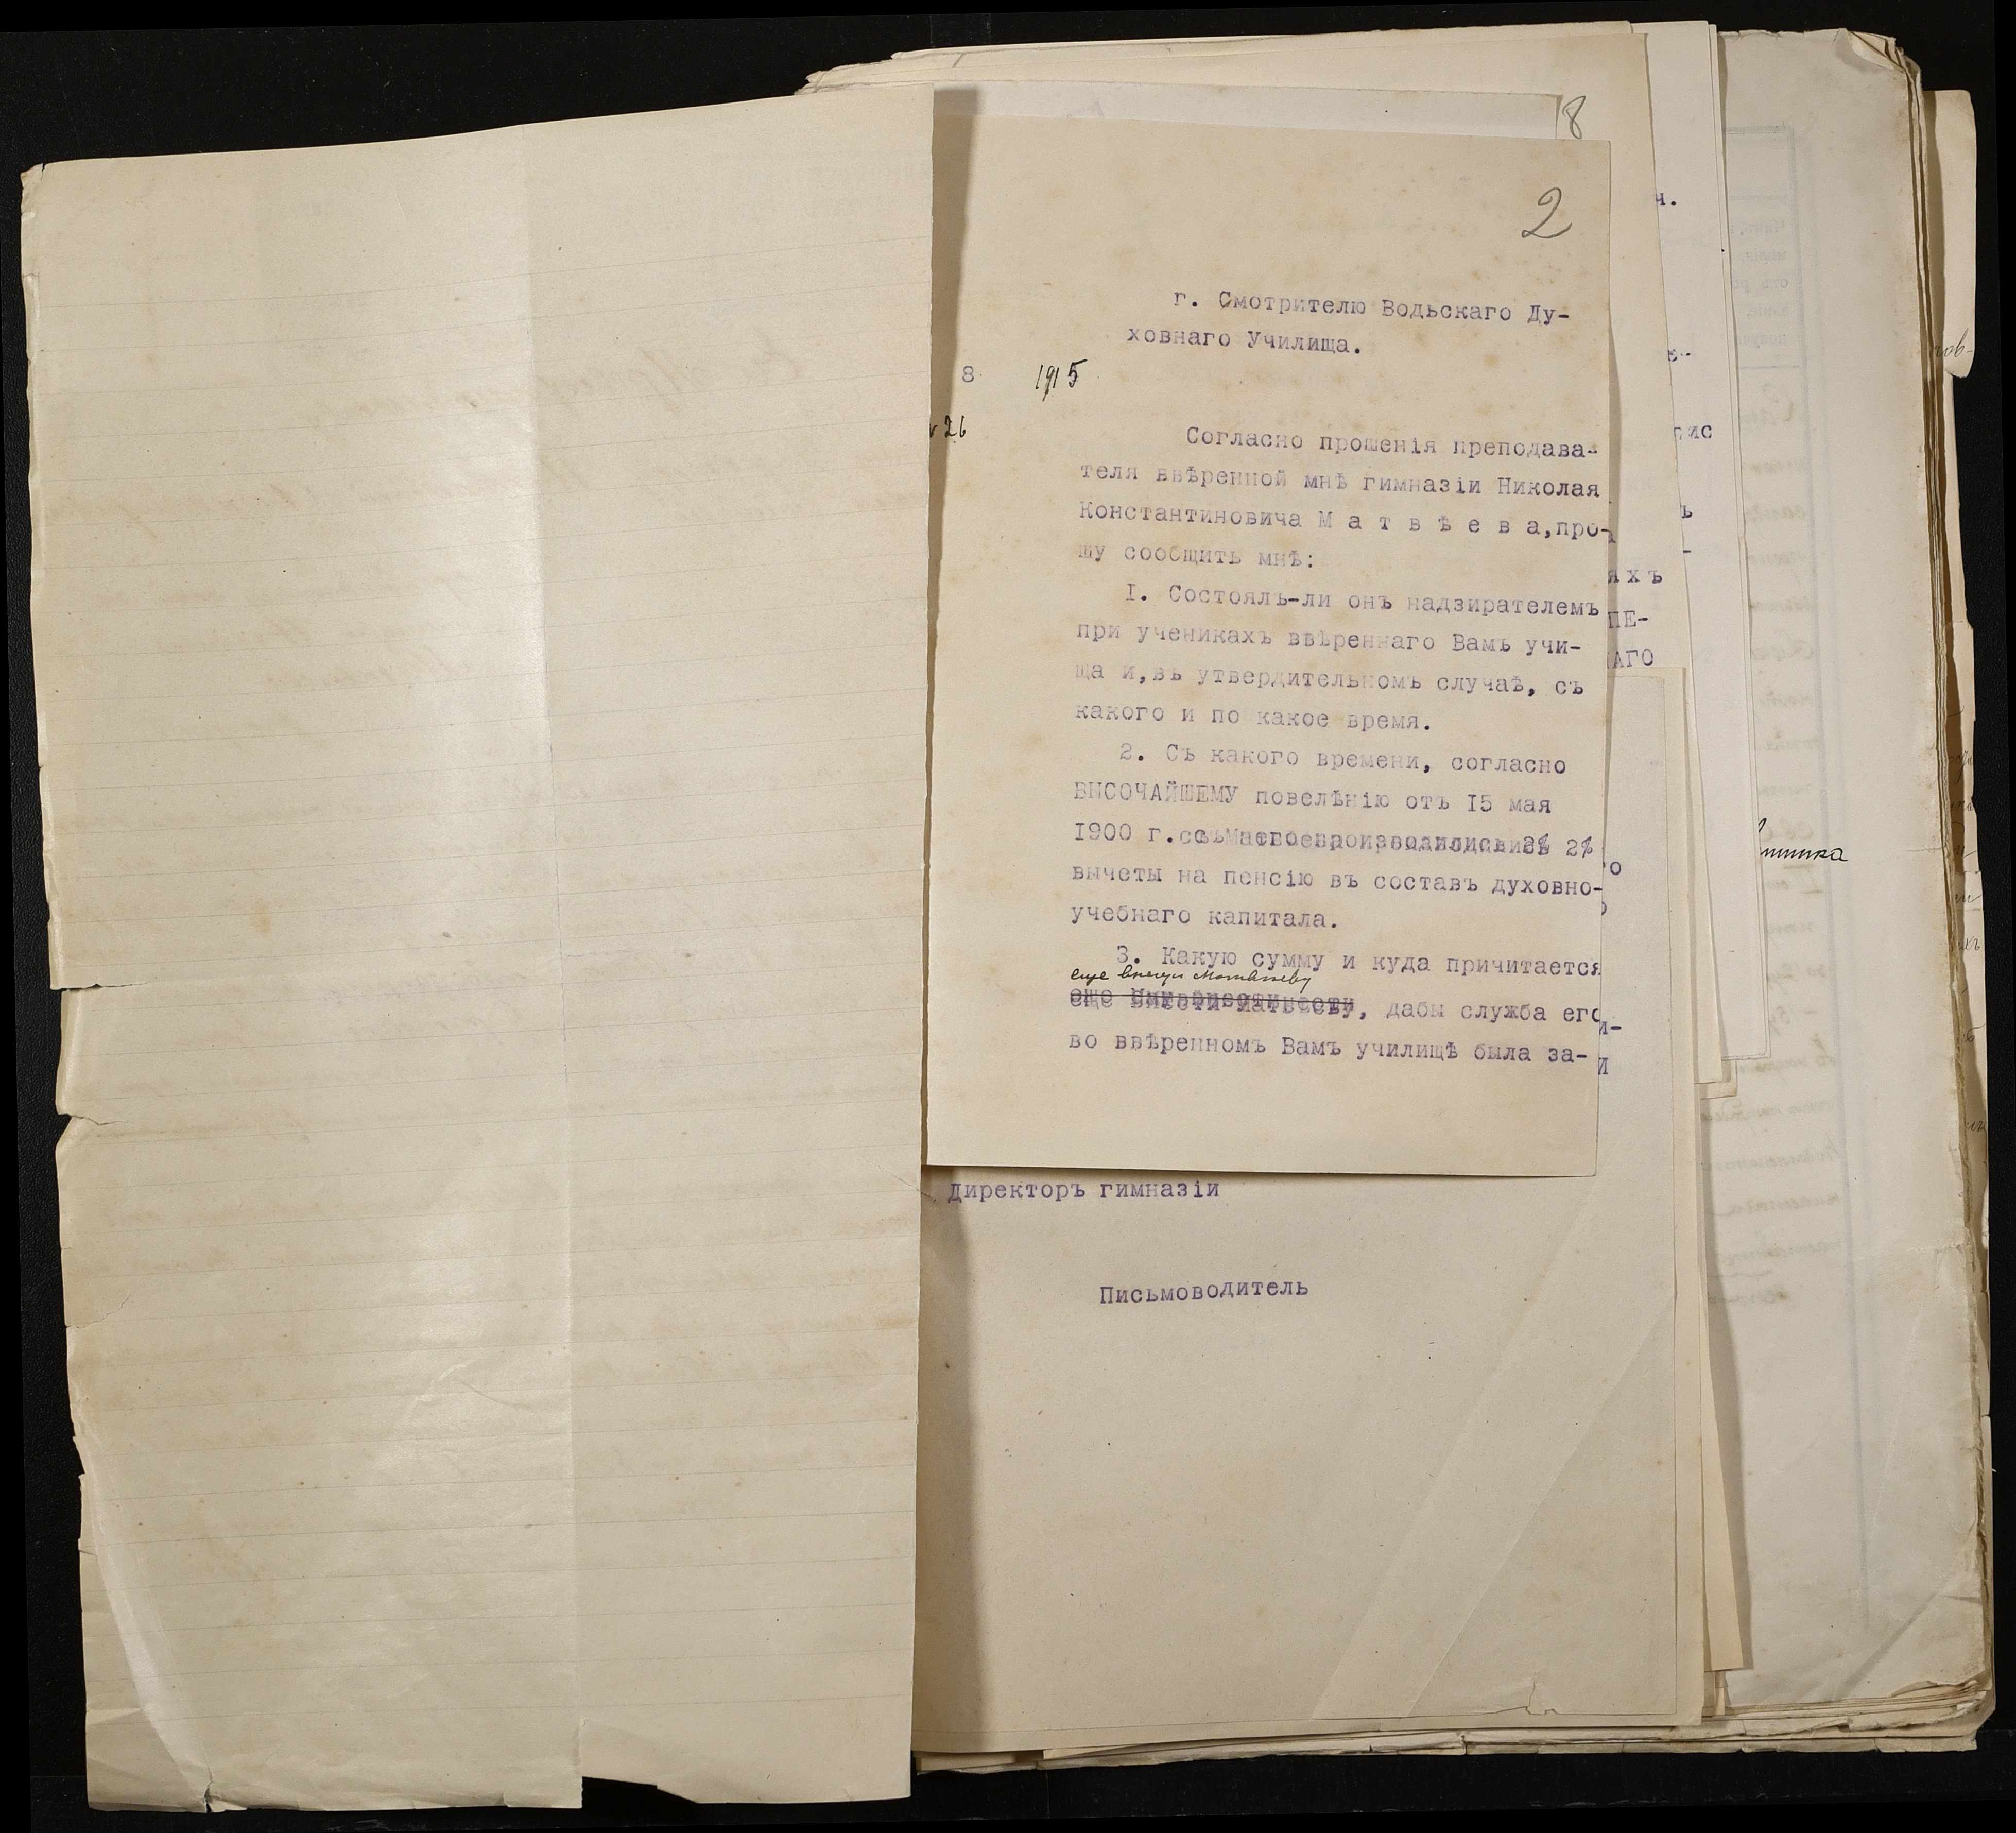 8
2
г. Смотрителю Водьскаго Ду-
ховнаго Училища.
8 1915
26
Согласно прошенія преподава-
теля ввѣренной мнѣ гимназіи Николая
Константиновича М а т в ѣ е в а,про-
шу сообщить мнѣ:
I. Состоялъ-ли онъ надзирателемъ
при ученикахъ ввѣреннаго Вамъ учи-
ща и,въ утвердительномъ случаѣ, съ
какого и по какое время.
2. Съ какого времени, согласно
ВЫСОЧАЙШЕМУ повелѣнію отъ I5 мая
I900 г. 2%
вычеты на пенсію въ составъ духовно-
учебнаго капитала.
3. Какую сумму и куда причитается
еще внести Матвѣеву
еще внести Матвѣеву, дабы служба его
во ввѣренномъ Вамъ училищѣ была за-
Директоръ гимназіи
Письмоводитель
ч.
гис
ъ
яхъ
ПЕ-
АГО
о
и-
и